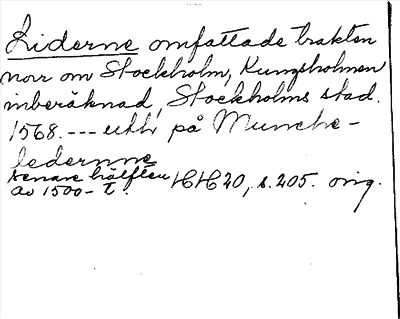 Liderne omfattade trakten
norr om Stockholm, Kungsholmen
inberäknad, Stockholms stad.
1568. --- utth på Munche-
ledernne
senare hälften
av 1500-t. HH 20, s. 205. orig.